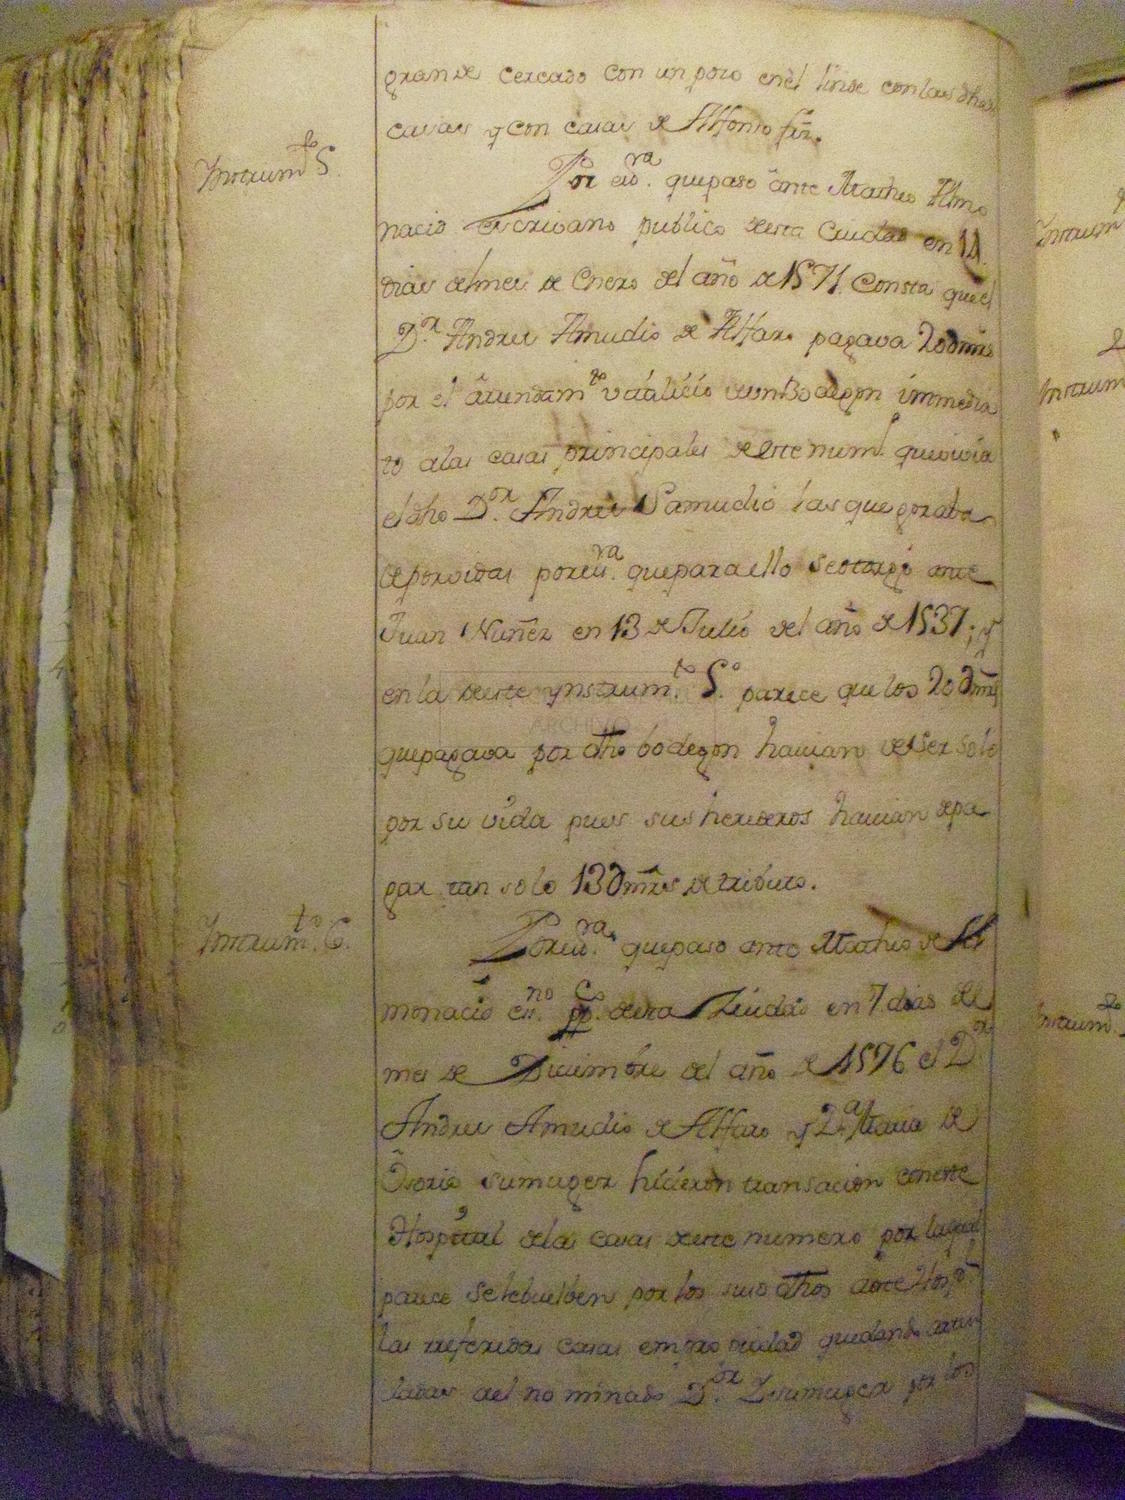 grande cercado con un pozo en el linde con las dhas
casas y con casas de Alfonso frz.
Instrumto 5.
Por esra. que paso ante Matheo Almo
nacid escrivano publico desta Ciudad en 14
dias del mes de Enero del año de 1571 Consta que el
Dor Andres Amudio de Alfaro pagava 20dmrs
por el arrendamto vitalicio de un Bodegon immedia
to a las casas principales de este numo que vivia
el dho Dor Andres Samudio las que gozaba
de por vidas por esra. que para ello se otorgo ante
Juan Nuñez en 13 de Julio del año de 1537; y
en la de este ynstrumto 5o parece que los 20dmrs
que pagava por dho bodegon havian de ser solo
por su vida pues sus herederos havian de pa
gar tan solo 13dmrs de tributo.
Instrumto. 6.
Por esra. que paso ante Matheo de Al
monacid esno. ppco. de esta Ziudad en 7 dias del
mes de Diciembre del año de 1576 el Dor
Andres Amudio de Alfaro y Da Maria de
Osorio su muger hicieron transacion con este
Hospital de las casas de este numero por la qual
parece se lebuelben por los suso dhos a este Hospl
las rreferidas casas en propriedad quedando arren
dadas al nominado Dor Y su muger por los